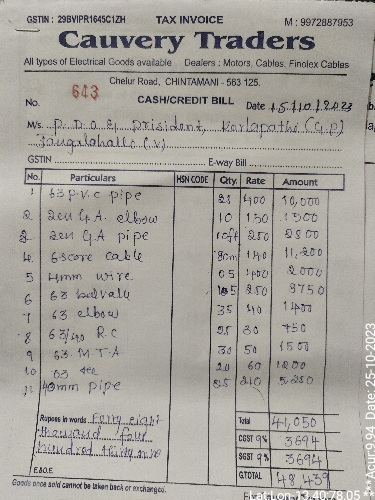 GSTIN : 29BVIPR1645C1ZH TAX INVOICE M : 9972887953
Cauvery Traders
All types of Electrical Goods available Dealers : Motors, Cables, Finolex Cables
Chelur Road, CHINTAMANI - 563 125.
No. 643 CASH/CREDIT BILL Date 15/10/2023
M/s. P.D.O & prisident,
GSTIN E-way Bill
No. Particulars HSN CODE Qty. Rate Amount
1 63 p.v.c pipe 25 400 10,000
2 elbow 10 150 1500
3 pipe 250 2500
4 cable 80m 140 11,200
5 4mm wire 05 400 2000
6 63 15 250 3750
7 63 elbow 35 40 1400
8 63/40 R.C 25 30 750
9 63 M.T.A 30 50 1500
10 63 tee 20 60 1200
11 40mm pipe 25 210 5250
Rupees in words Forty eight Total 41,050
thousand four CGST 9% 3694
hundred thirty nine SGST 9% 3694
E.&O.E. G.TOTAL 48439
Goods once sold cannot be taken back or exchanged.
Lat:Lon 13.40.78.05 ***Acur:9.94 Date: 25-10-2023